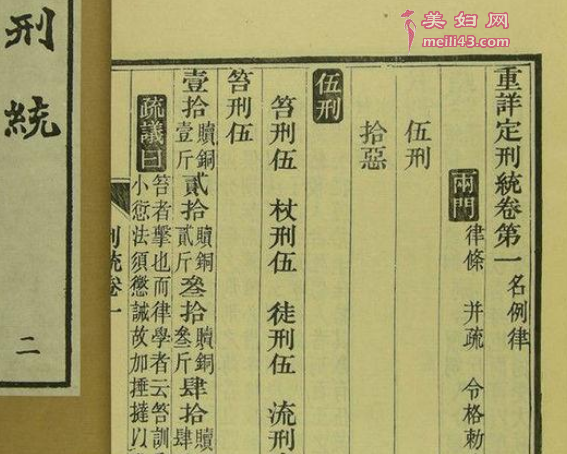 美妇网
meili43.com
重詳定刑統卷第一 名例律
兩門 律條 并疏 令格勅
伍刑
拾惡
伍刑
笞刑伍 杖刑伍 徒刑伍 流刑
笞刑伍
壹拾 贖銅壹斤 貳拾 贖銅貳斤 叁拾 贖銅叁斤 肆拾 贖肆
疏議曰 笞者擊也而律學者云笞訓
小愆法須懲誡故加捶撻以
刑統卷一
刑統
二